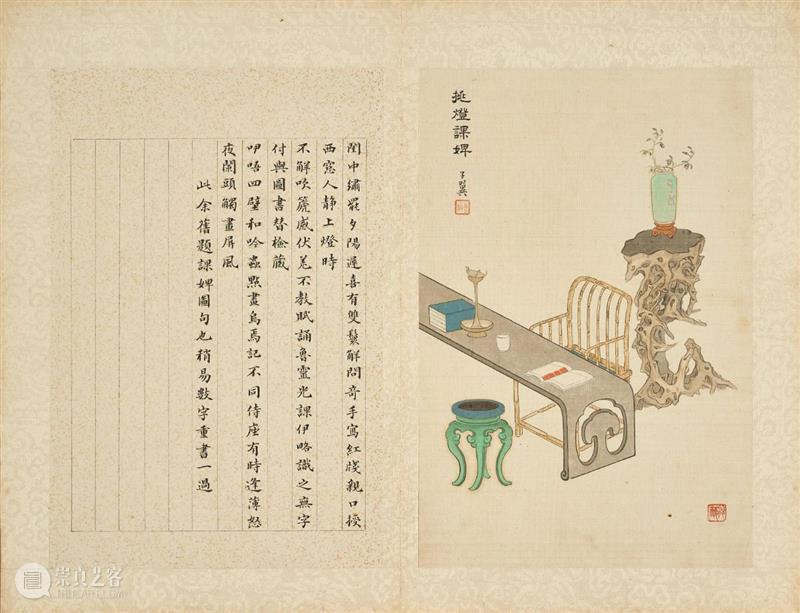 挑燈課婢
閨中繡罷夕陽遲喜有雙鬟解問奇手寫紅牋親口授
西窓人静上燈時
不解吹篪感伏羌不教賦誦魯靈光課伊略識之無字
付與圖書替檢蔵
咿唔四壁和吟蟲點畫烏焉記不同侍座有時逢薄怒
夜闌頭觸畫屏風
此余舊題課婢圖句也稍易數字重書一過
崇真艺客